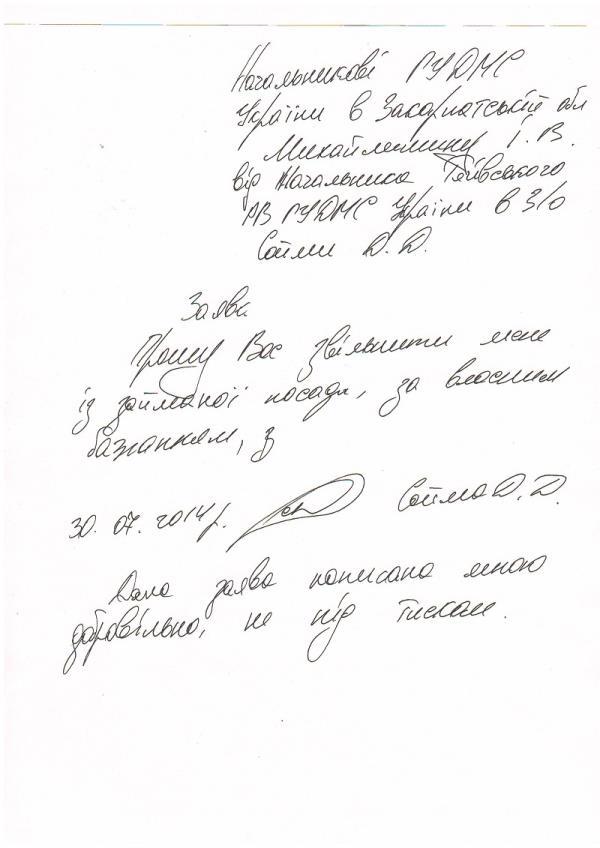 Начальникові ГУДМС
України в Закарпатській обл
Михайлишину І. В.
від Начальника Тячівського
РВ ГУДМС України в З/о
Сойми Д. Д.
Заява
Прошу Вас звільнити мене
із займаної посади, за власним
бажанням, з
30. 07. 2014 р. Сойма Д. Д.
Дана заява написана мною
добровільно, не під тиском.